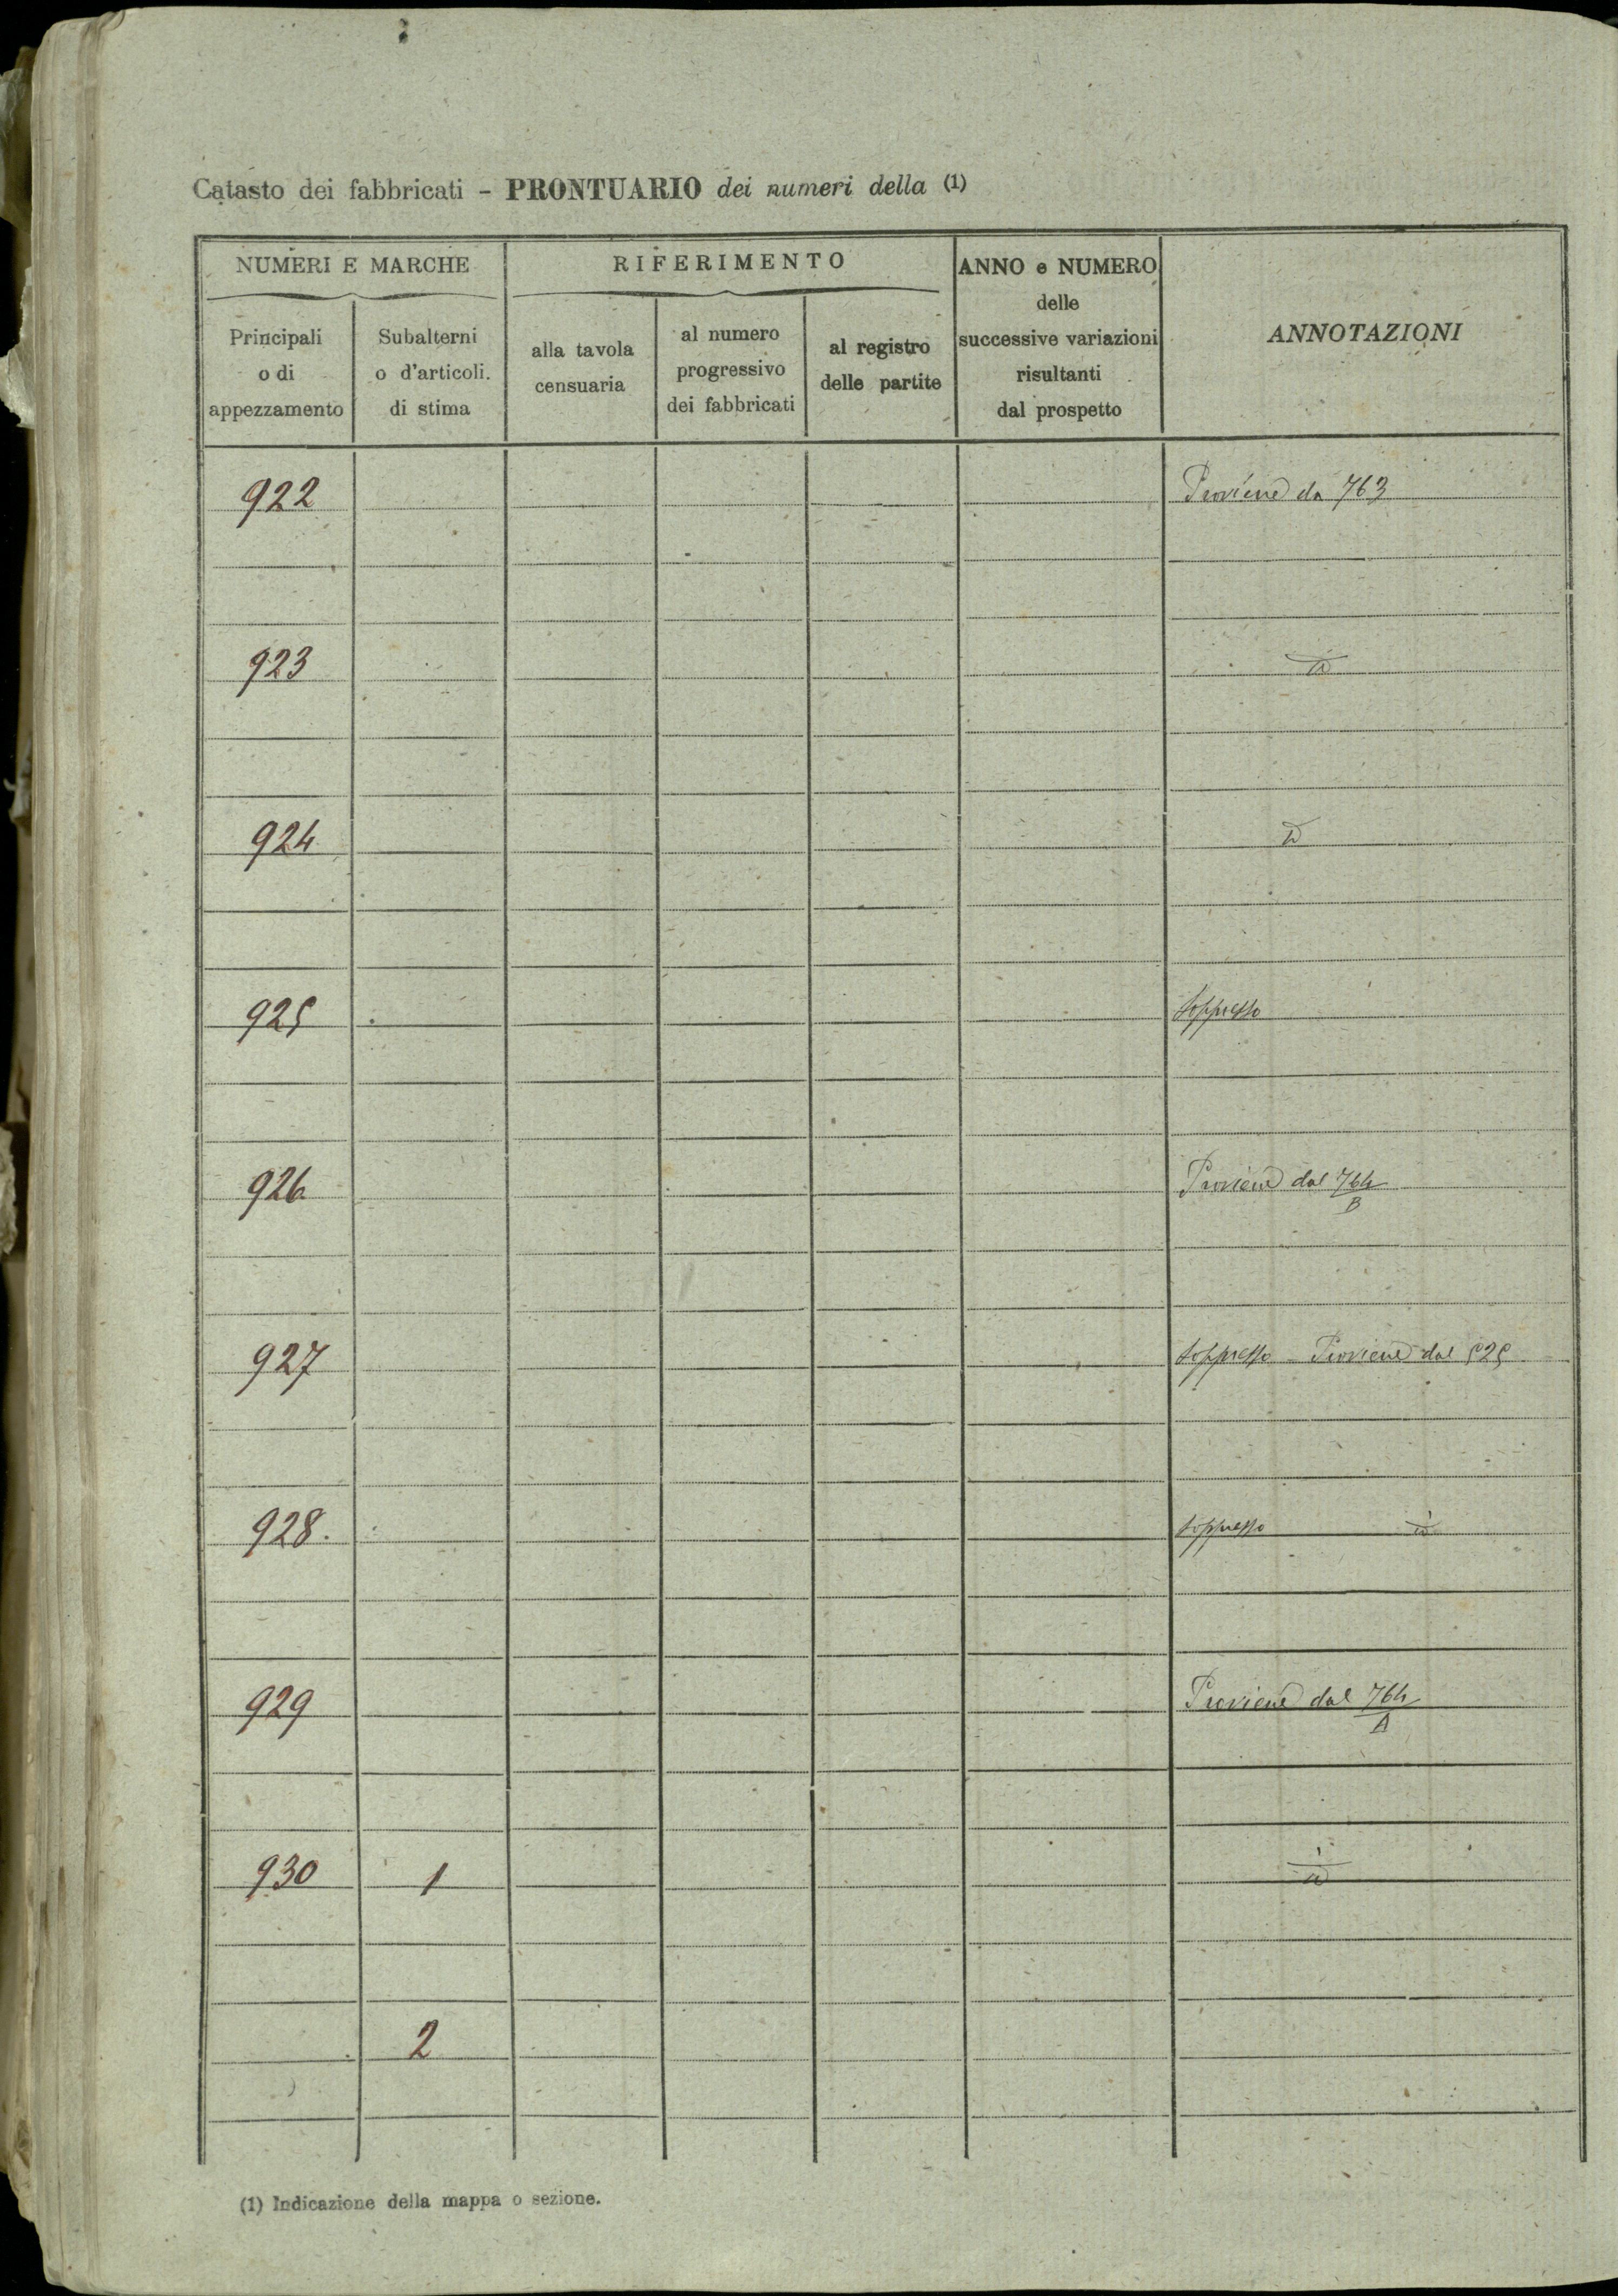 Catasto dei fabbricati - PRONTUARIO dei numeri della (1)
NUMERI E MARCHE
RIFERIMENTO
ANNO e NUMERO
delle
successive variazioni
risultanti
dal prospetto
ANNOTAZIONI
Principali
o di
appezzamento
Subalterni
o d'articoli.
di stima
alla tavola
censuaria
al numero
progressivo
dei fabbricati
al registro
delle partite
922 Proviene da 763
923 id
924 id
925 soppresso
926 Proviene dal 764/B
927 soppresso - Proviene dal 525
928. soppresso id
929 Proviene dal 764/A
930 1 id
2
(1) Indicazione della mappa o sezione.